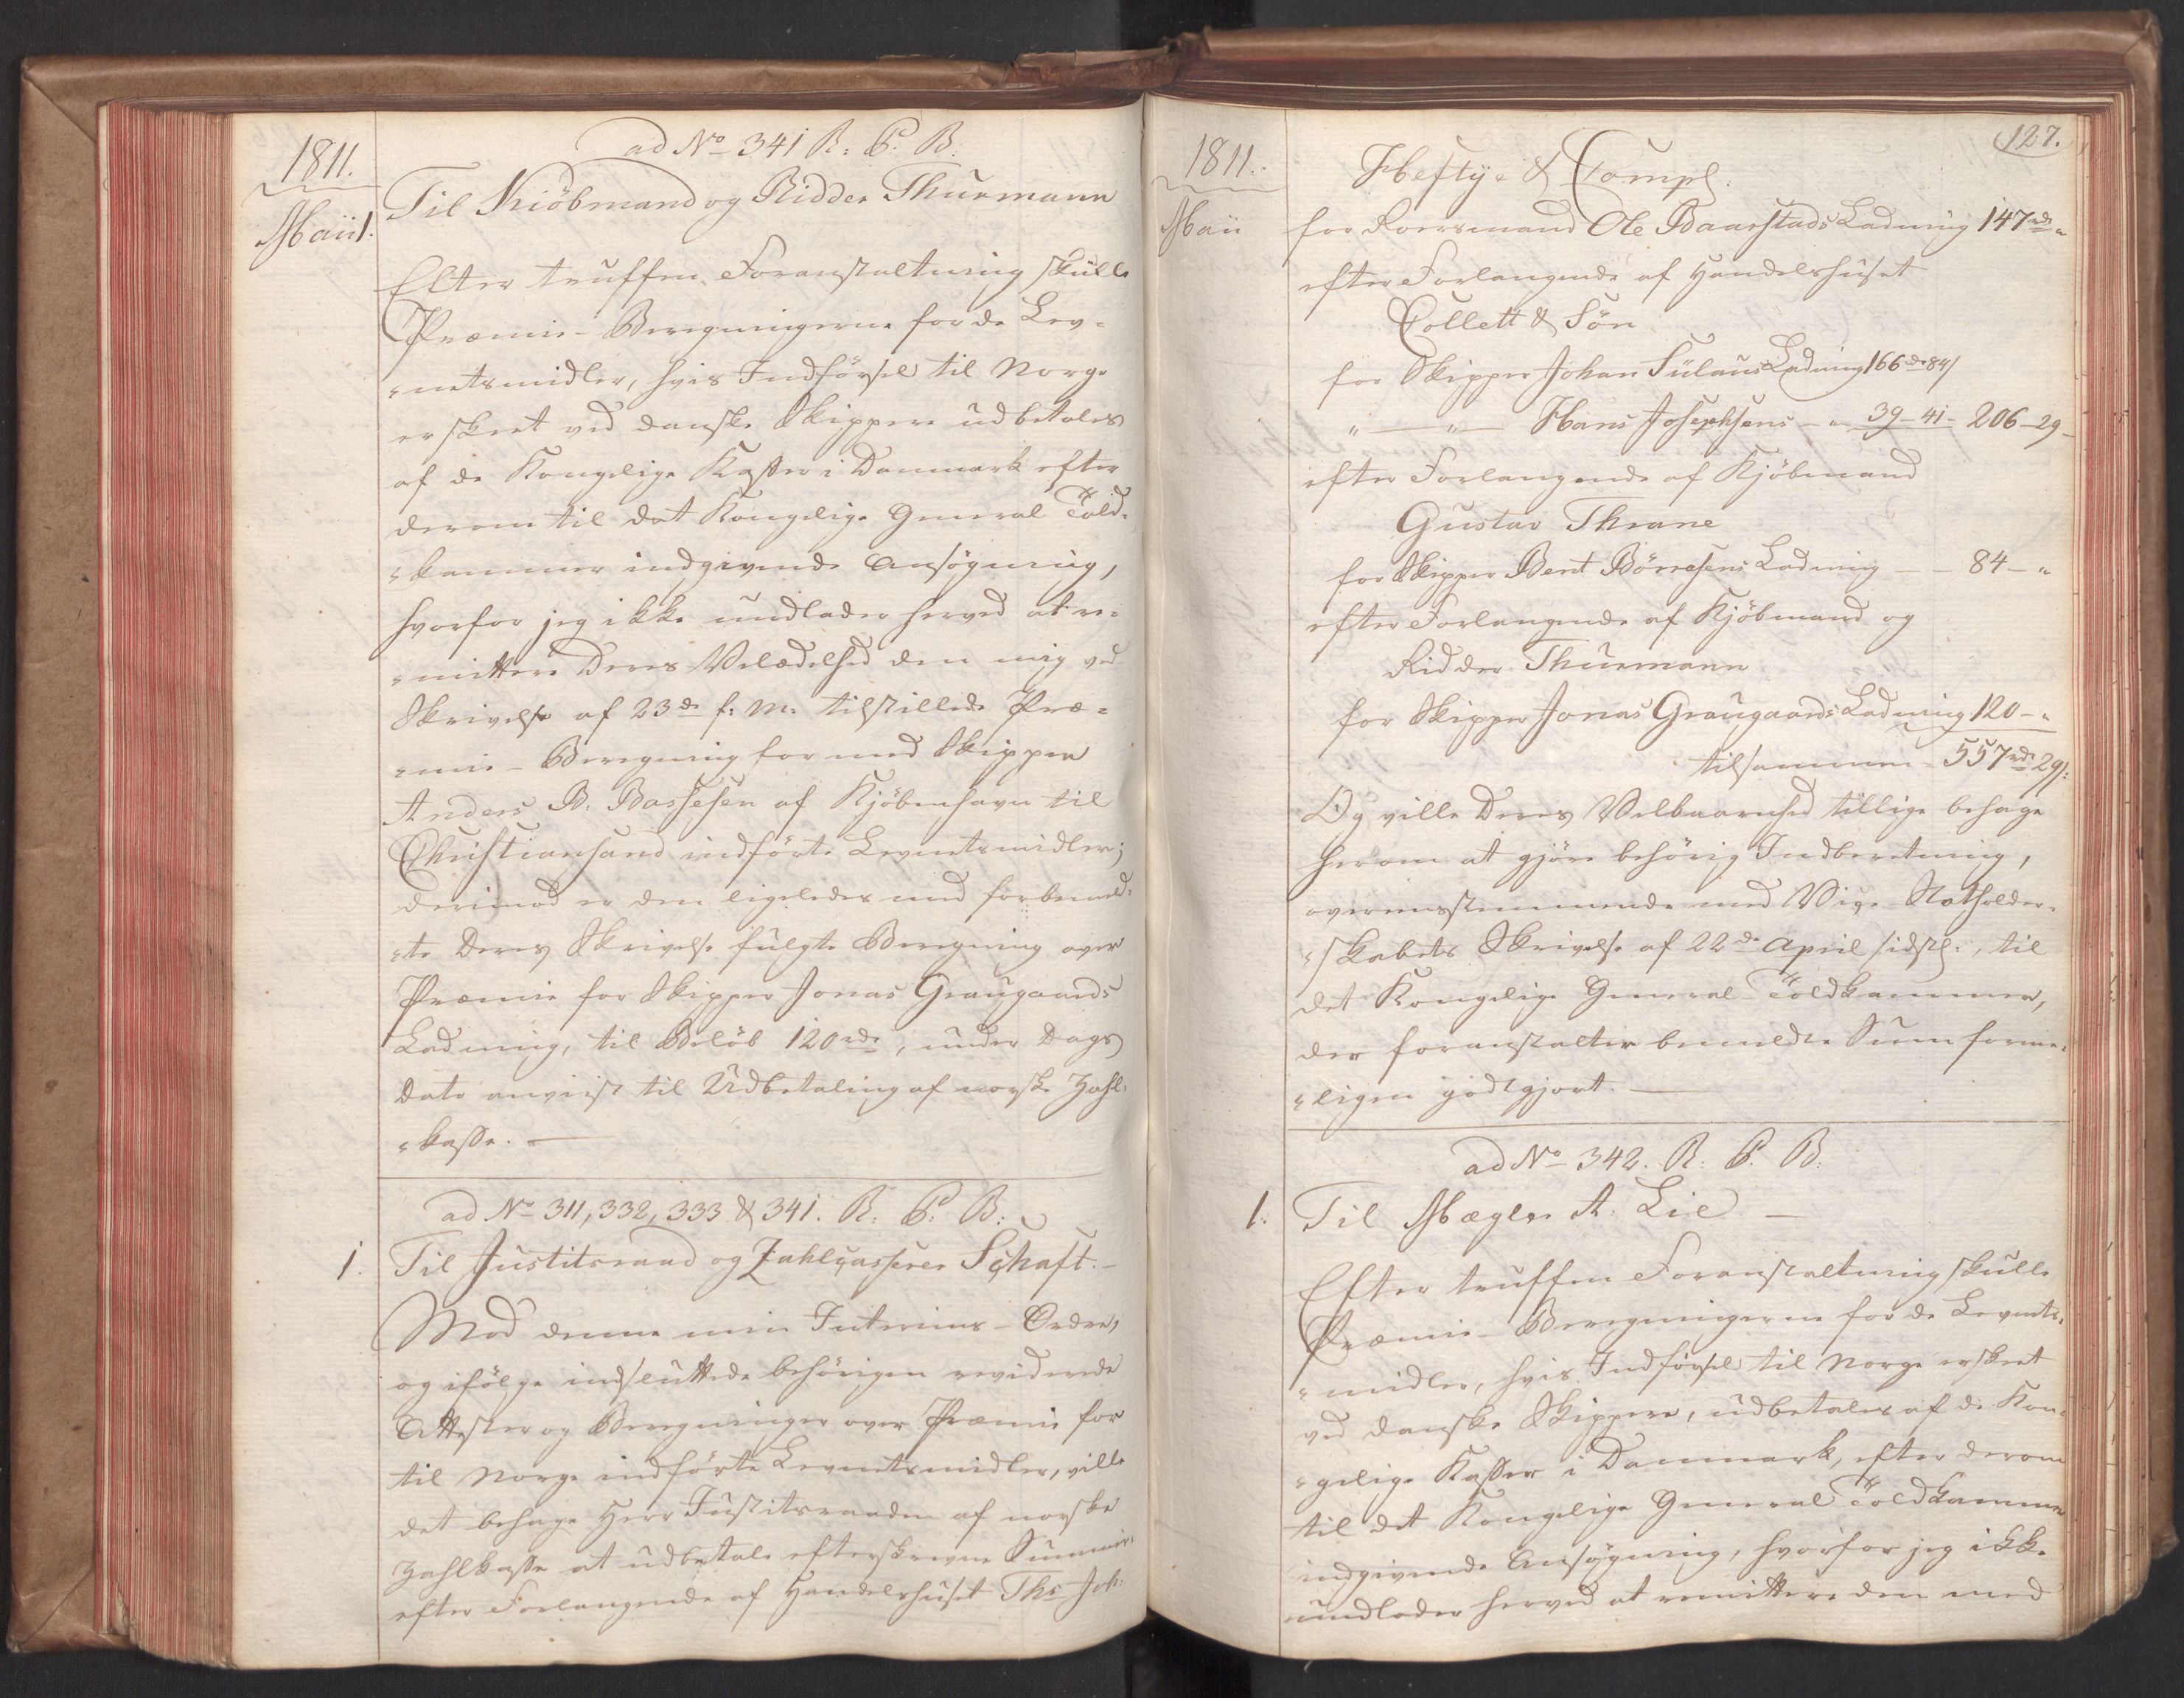 1811.
ad No 341 R: C: B:
Maii 1.
Til Kiöbmand og Ridder Thurmann
Efter truffen Foranstaltning skulle
Præmie-Beregningerne for de Lev-
netsmidler, hvis Indførsel til Norge
er skeet ved danske Skippere udbetales
af de Kongelige Kasser i Danmark efter
derom til det Kongelige General Told-
kammer indgivende Ansøgning,
hvorfor jeg ikke undlader herved at re-
mittere Deres Velædelhed den mig ved
Skrivelse af 23de f: M: tilstillede Præ-
mie-Beregning for med Skipper
Anders B. Bassesen af Kjöbenhavn til
Christiansand indførte Levnetsmidler;
derimod er den ligeledes med forbemeld-
te Deres Skrivelse fulgte Beregning over
Præmie for Skipper Jonas Graugaards
Ladning, til Beløb 120 rdr, under Dags
Dato anviist til Udbetaling af norske Zahl-
kasse.
ad No 311, 332, 333 & 341. R: C: B:
1. Til Justitsraad og Zahlcasserer Schaft.
Mod denne min Interims-Ordre,
og ifølge indsluttede behørigen reviderede
Attester og Beregninger over Præmie for
til Norge indførte Levnetsmidler, ville
det behage Herr Justitsraaden af norske
Zahlkasse at udbetale efterskrevne Summer:
efter Forlangende af Handelshuset Ths Joh:
127.
1811.
Maii
Heftye & Comp.
for Roersmand Ole Baarstads Ladning 147 rdr "
efter Forlangende af Handelshuset
Collett & Søn
for Skipper Johan Fülaus Ladning 166 rdr 84 /
" — " — Hans Josephsens — " 39 - 41 - 206 - 29 -
efter Forlangende af Kjöbmand
Gustav Thrane
for Skipper Bent Börresens Ladning — 84 - "
efter Forlangende af Kjöbmand og
Ridder Thurmann
for Skipper Jonas Graugaards Ladning 120 - "
tilsammen 557 rdr 29 /:
Og ville Deres Velbaarenhed tillige behage
herom at gjøre behørig Indberetning,
overensstemmende med Vice-Statholder-
skabets Skrivelse af 22de April sidstl:, til
det Kongelige General-Toldkammer,
der foranstalter bemeldte Sum forme-
ligen godtgjort.
ad No 342. R: C: B:
1. Til Mægler A. Lie —
Efter truffen Foranstaltning skulle
Præmie-Beregningerne for de Levnets-
midler, hvis Indførsel til Norge er skeet
ved danske Skippere, udbetales af de Kon-
gelige Kasser i Danmark, efter derom
til det Kongelige General Toldkammer
indgivende Ansøgning, hvorfor jeg ikke
undlader herved at remittere den med